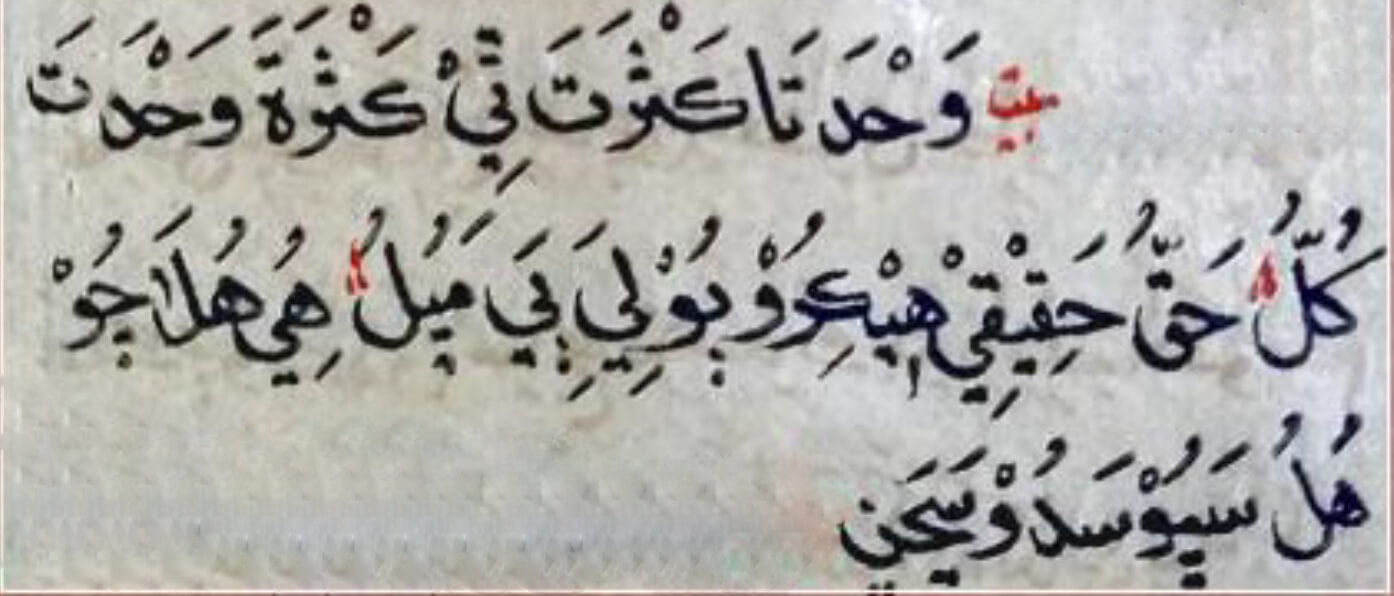 بيت وَحْدَتَا كَثْرَتَ تِيْ كَثْرَةَ وَحْدَتَ
كُلُّ حَقُّ حَقِيْقِيْ هِيْكِرُوْ بُوْلِيَ بِيَ مَيُلُ هِيُ هُلَا جُوْ
هُلُ سَيُوْسَدُوْ